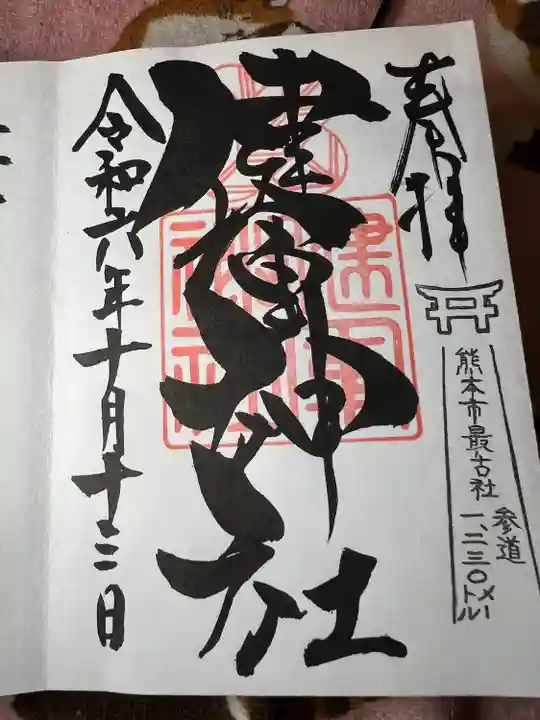 奉拝
熊本市最古社
参道
一、二三〇メートル
健軍神社
令和六年十月十二日